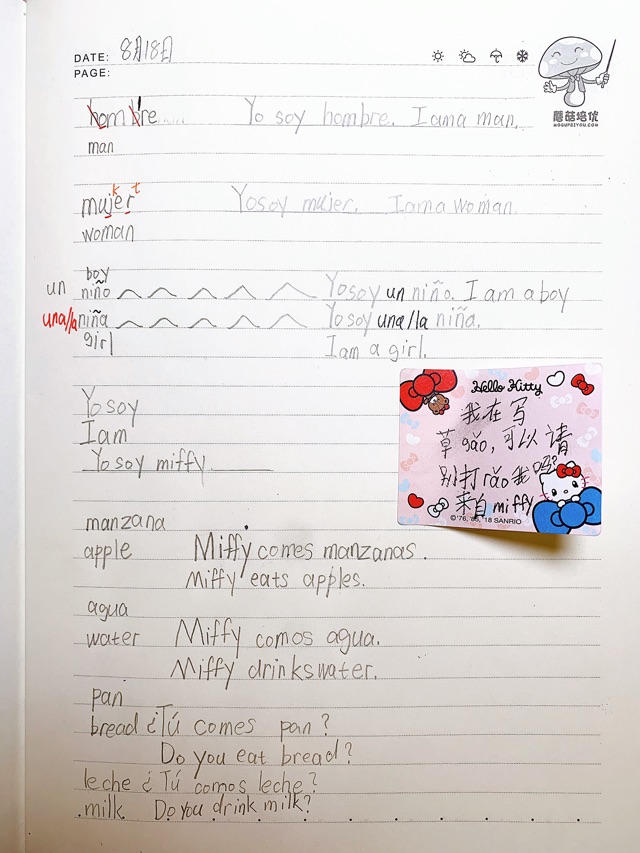 DATE: 8月18日
PAGE:
蘑菇培优
MOGUPEIYOU.COM
hombre Yo soy hombre. I am a man.
man
k t
mujer Yo soy mujer. I am a woman.
woman
boy
un niño Yo soy un niño. I am a boy
una/la niña Yo soy una/la niña.
girl I am a girl.
Yo soy
I am
Yo soy miffy
Hello Kitty
我在写
草gǎo,可以请
别打rǎo我吗?
来自miffy
©'76, '85, '18 SANRIO
manzana
apple Miffy comes manzanas.
Miffy eats apples.
agua
water Miffy comos agua.
Miffy drinks water.
pan
bread ¿Tú comes pan?
Do you eat bread?
leche ¿Tú comos leche?
milk Do you drink milk?